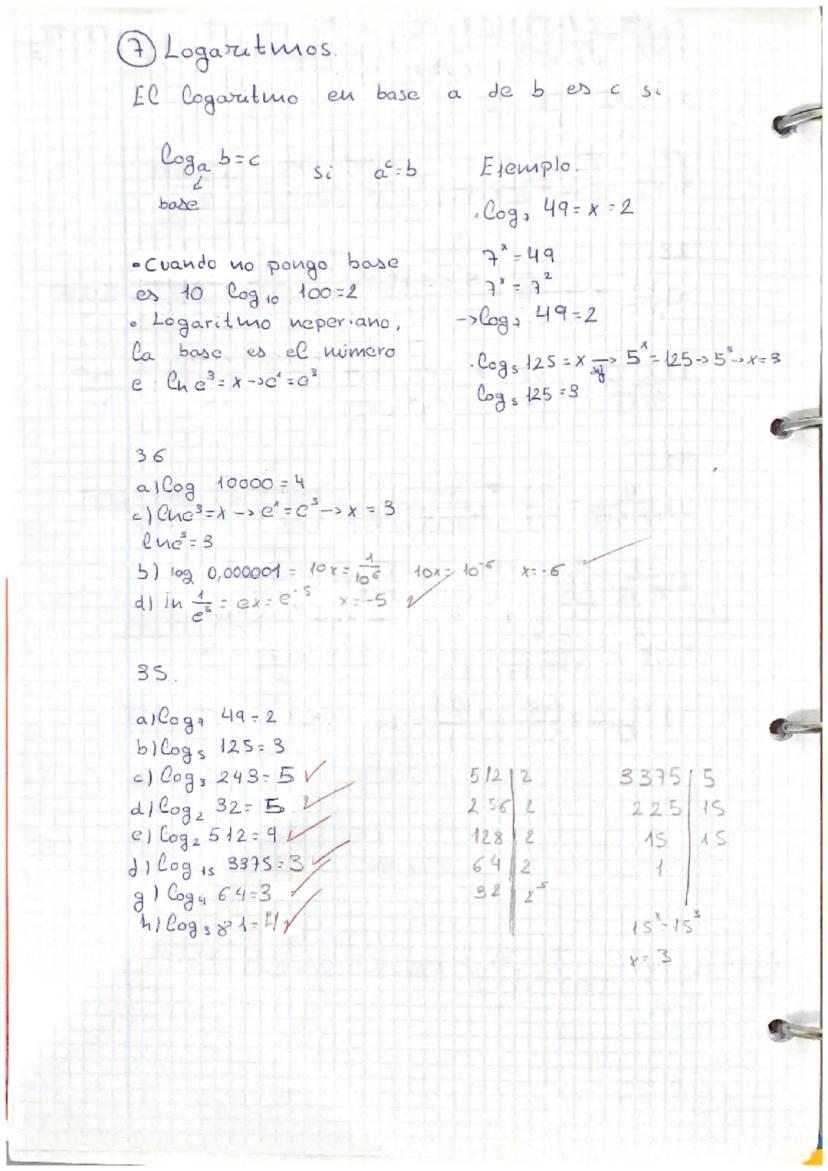 7 Logaritmos.
El logaritmo en base a de b es c si
log_a b=c si a^c=b
base
Ejemplo.
· log_7 49=x=2
7^x=49
7^x=7^2
->log_7 49=2
· log_5 125=x -> 5^x=125->5^3->x=3
log_5 125=3
• Cuando no pongo base
es 10 log_10 100=2
• Logaritmo neperiano,
la base es el número
e. ln e^3=x->e^x=e^3
36
a) log 10000=4
c) ln e^3=x->e^x=e^3->x=3
ln e^3=3
b) log 0,000001= 10x=1/10^6 10x=10^-6 x=-6
d) in 1/e^5= ex=e^-5 x=-5
35.
a) log_7 49=2
b) log_5 125=3
c) log_3 243=5 ✓
d) log_2 32=5 ✓
e) log_2 512=9 ✓
d) log_15 3375=3 ✓
g) log_4 64=3 ✓
h) log_3 81=4 ✓
512 | 2
256 | 2
128 | 2
64 | 2
32 | 2^5
3375 | 5
225 | 15
15 | 15
1
15^x=15^3
x=3